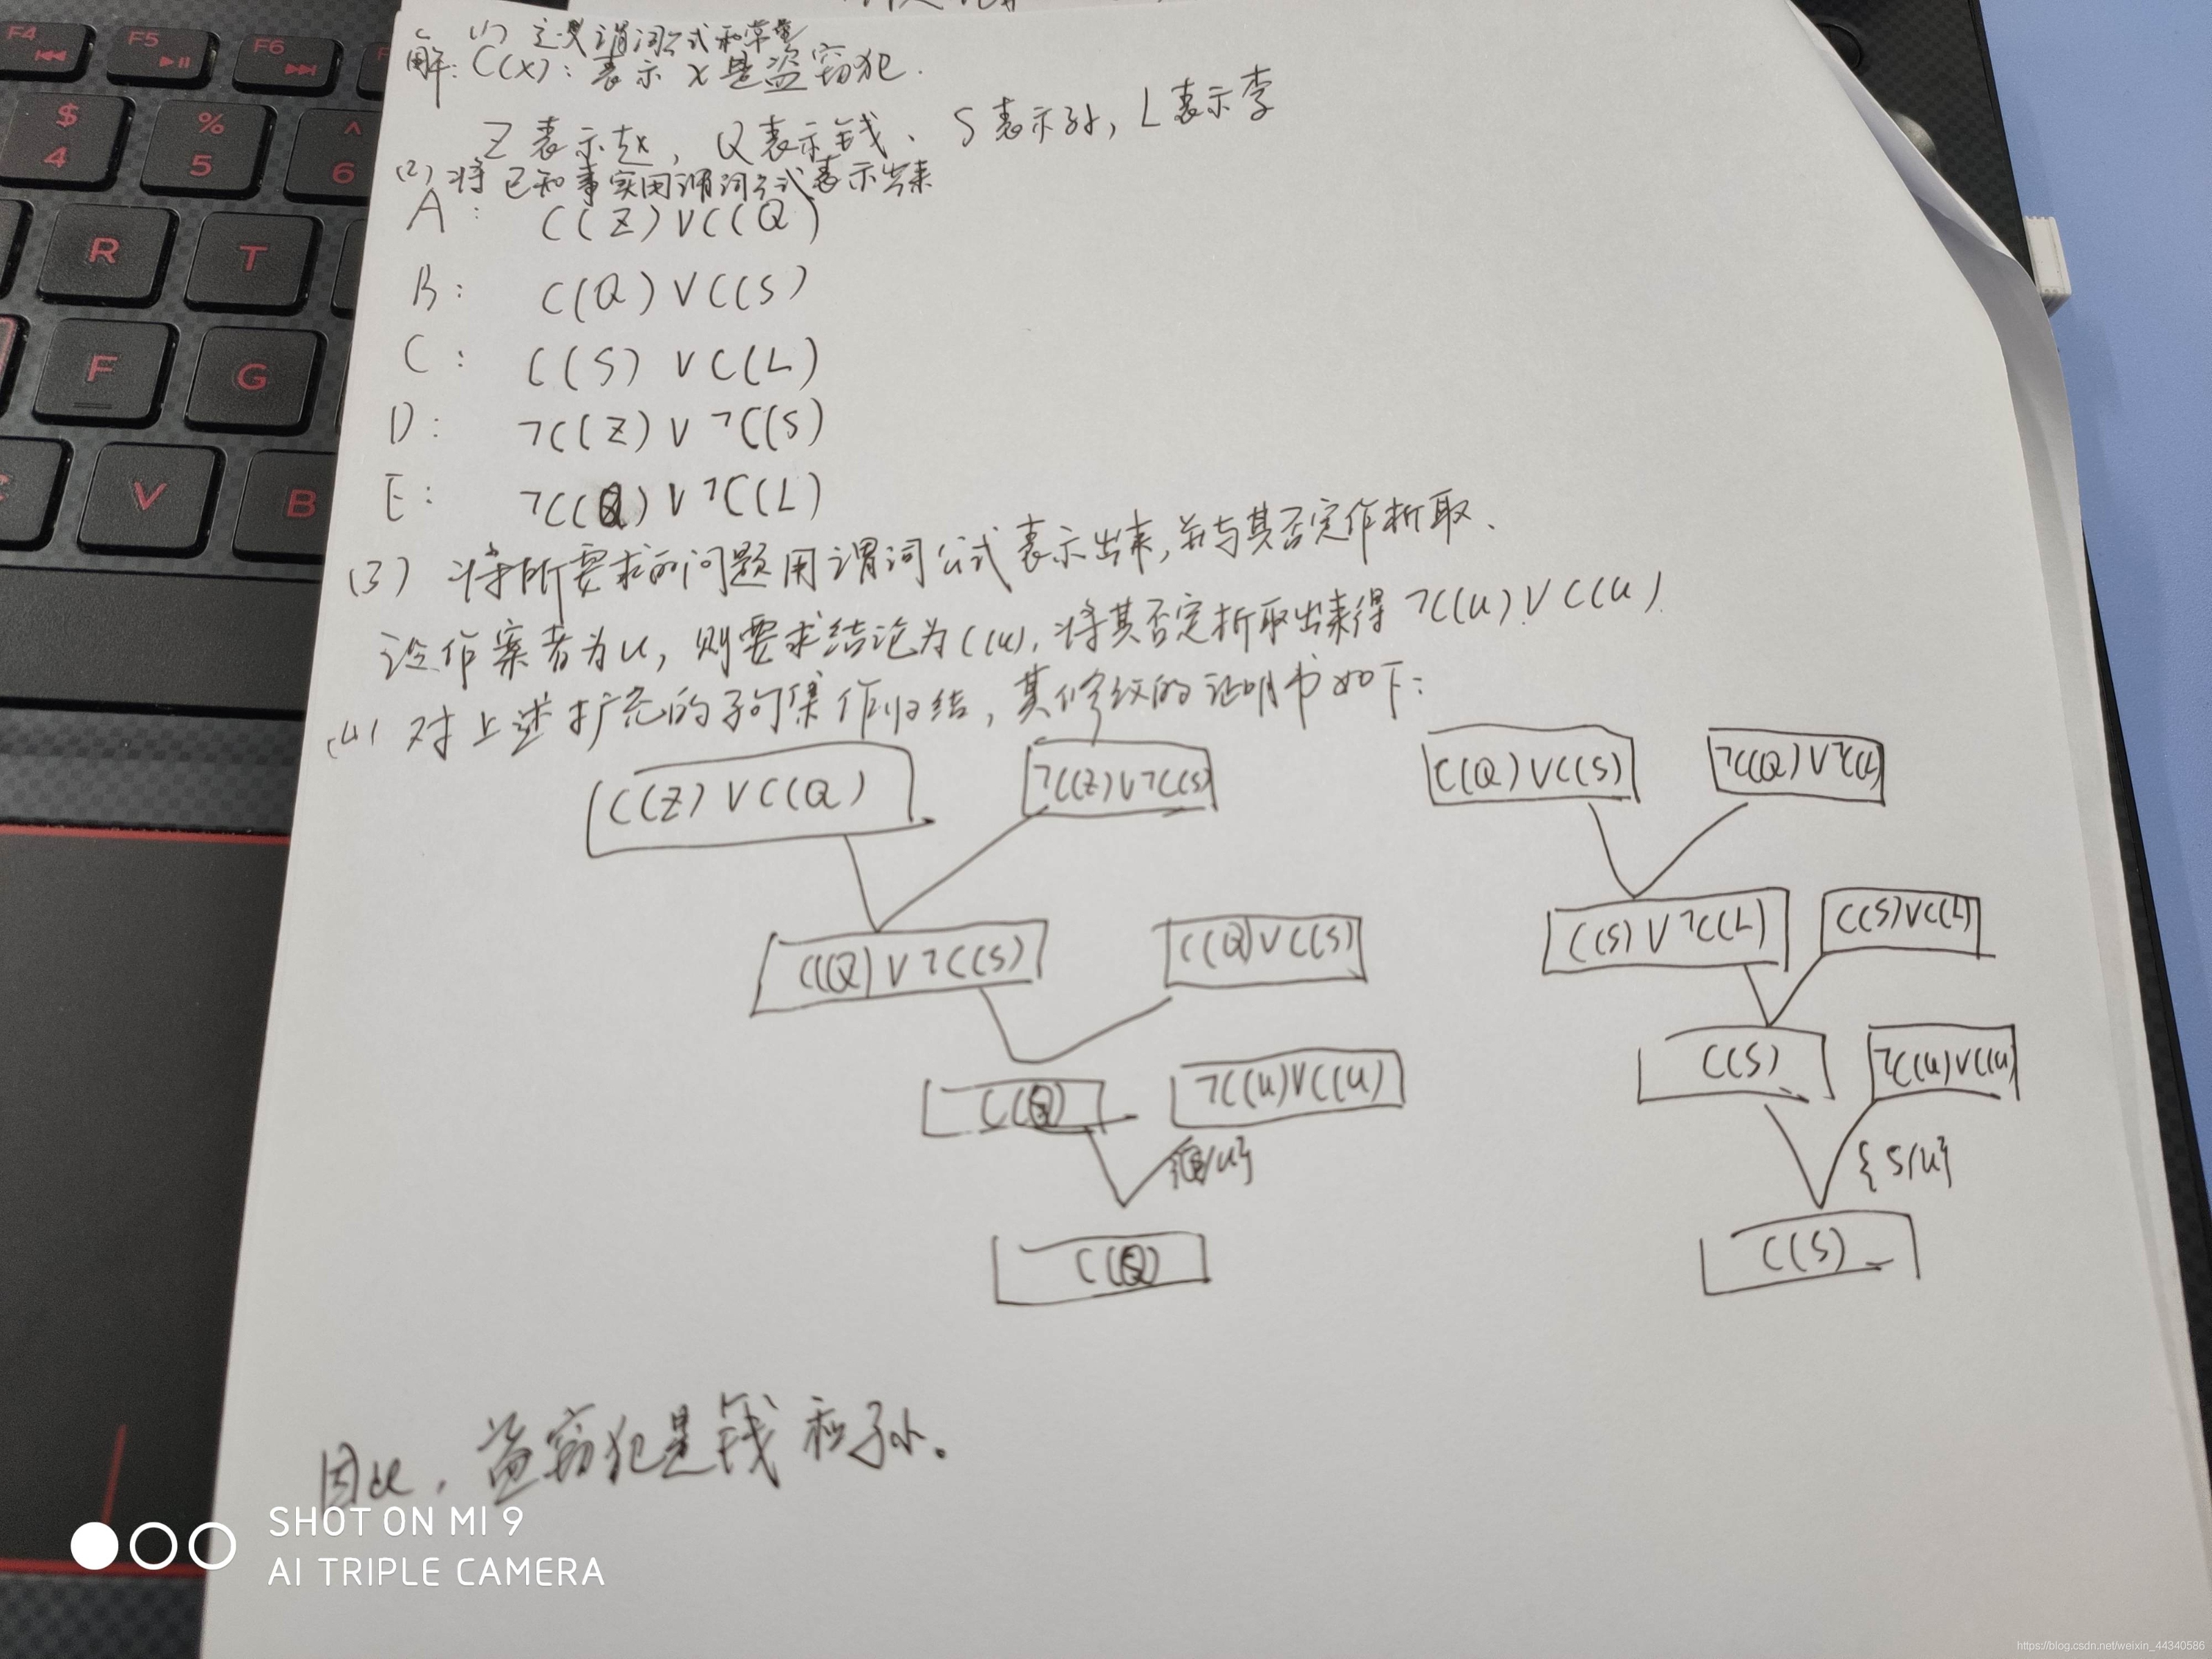 F4
F5
F6
$
4
%
5
^
6
R
T
F
G
V
B
(1) 定义谓词公式和常量
解: C(x): 表示 x是盗窃犯.
Z 表示赵, Q表示钱、 S表示孙, L表示李
(2) 将已知事实用谓词公式表示出来
A: C(Z)∨C(Q)
B: C(Q)∨C(S)
C: C(S)∨C(L)
D: ¬C(Z)∨¬C(S)
E: ¬C(Q)∨¬C(L)
(3) 将所要求的问题用谓词公式表示出来,并与其否定作析取、
设作案者为u, 则要求结论为C(u), 将其否定析取出来得 ¬C(u)∨C(u).
(4) 对上述扩充的子句集作归结, 其修改的证明书如下:
C(Z)∨C(Q)
¬C(Z)∨¬C(S)
C(Q)∨C(S)
¬C(Q)∨¬C(L)
C(Q)∨¬C(S)
C(Q)∨C(S)
C(S)∨¬C(L)
C(S)∨C(L)
C(Q)
¬C(u)∨C(u)
C(S)
¬C(u)∨C(u)
{Q/u}
{S/u}
C(Q)
C(S)
因此, 盗窃犯是钱和孙。
SHOT ON MI 9
AI TRIPLE CAMERA
https://blog.csdn.net/weixin_44340586